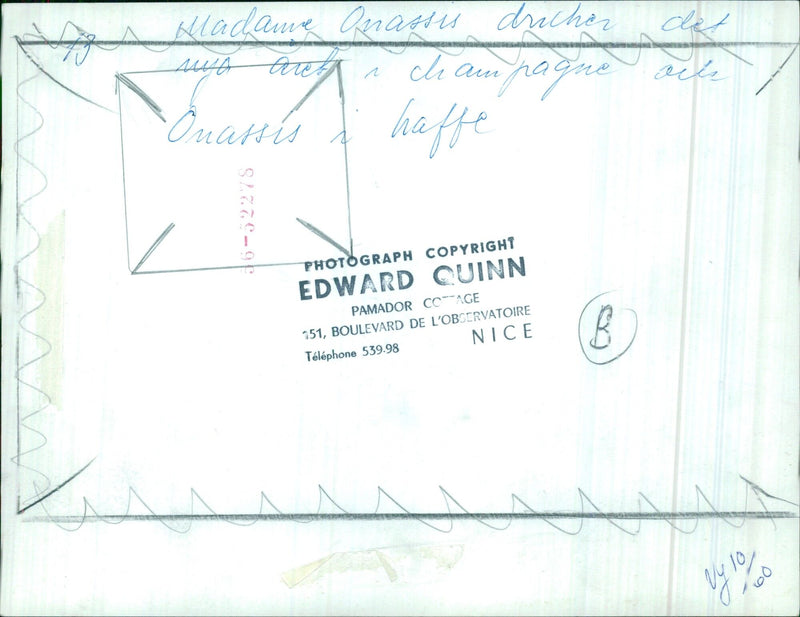 Madame Onassis dricker det
13
nya året i champagne och
Onassis i kaffe
56-52278
PHOTOGRAPH COPYRIGHT
EDWARD QUINN
PAMADOR COTTAGE
151, BOULEVARD DE L'OBSERVATOIRE
Téléphone 539.98 NICE
B
Vy 10/60